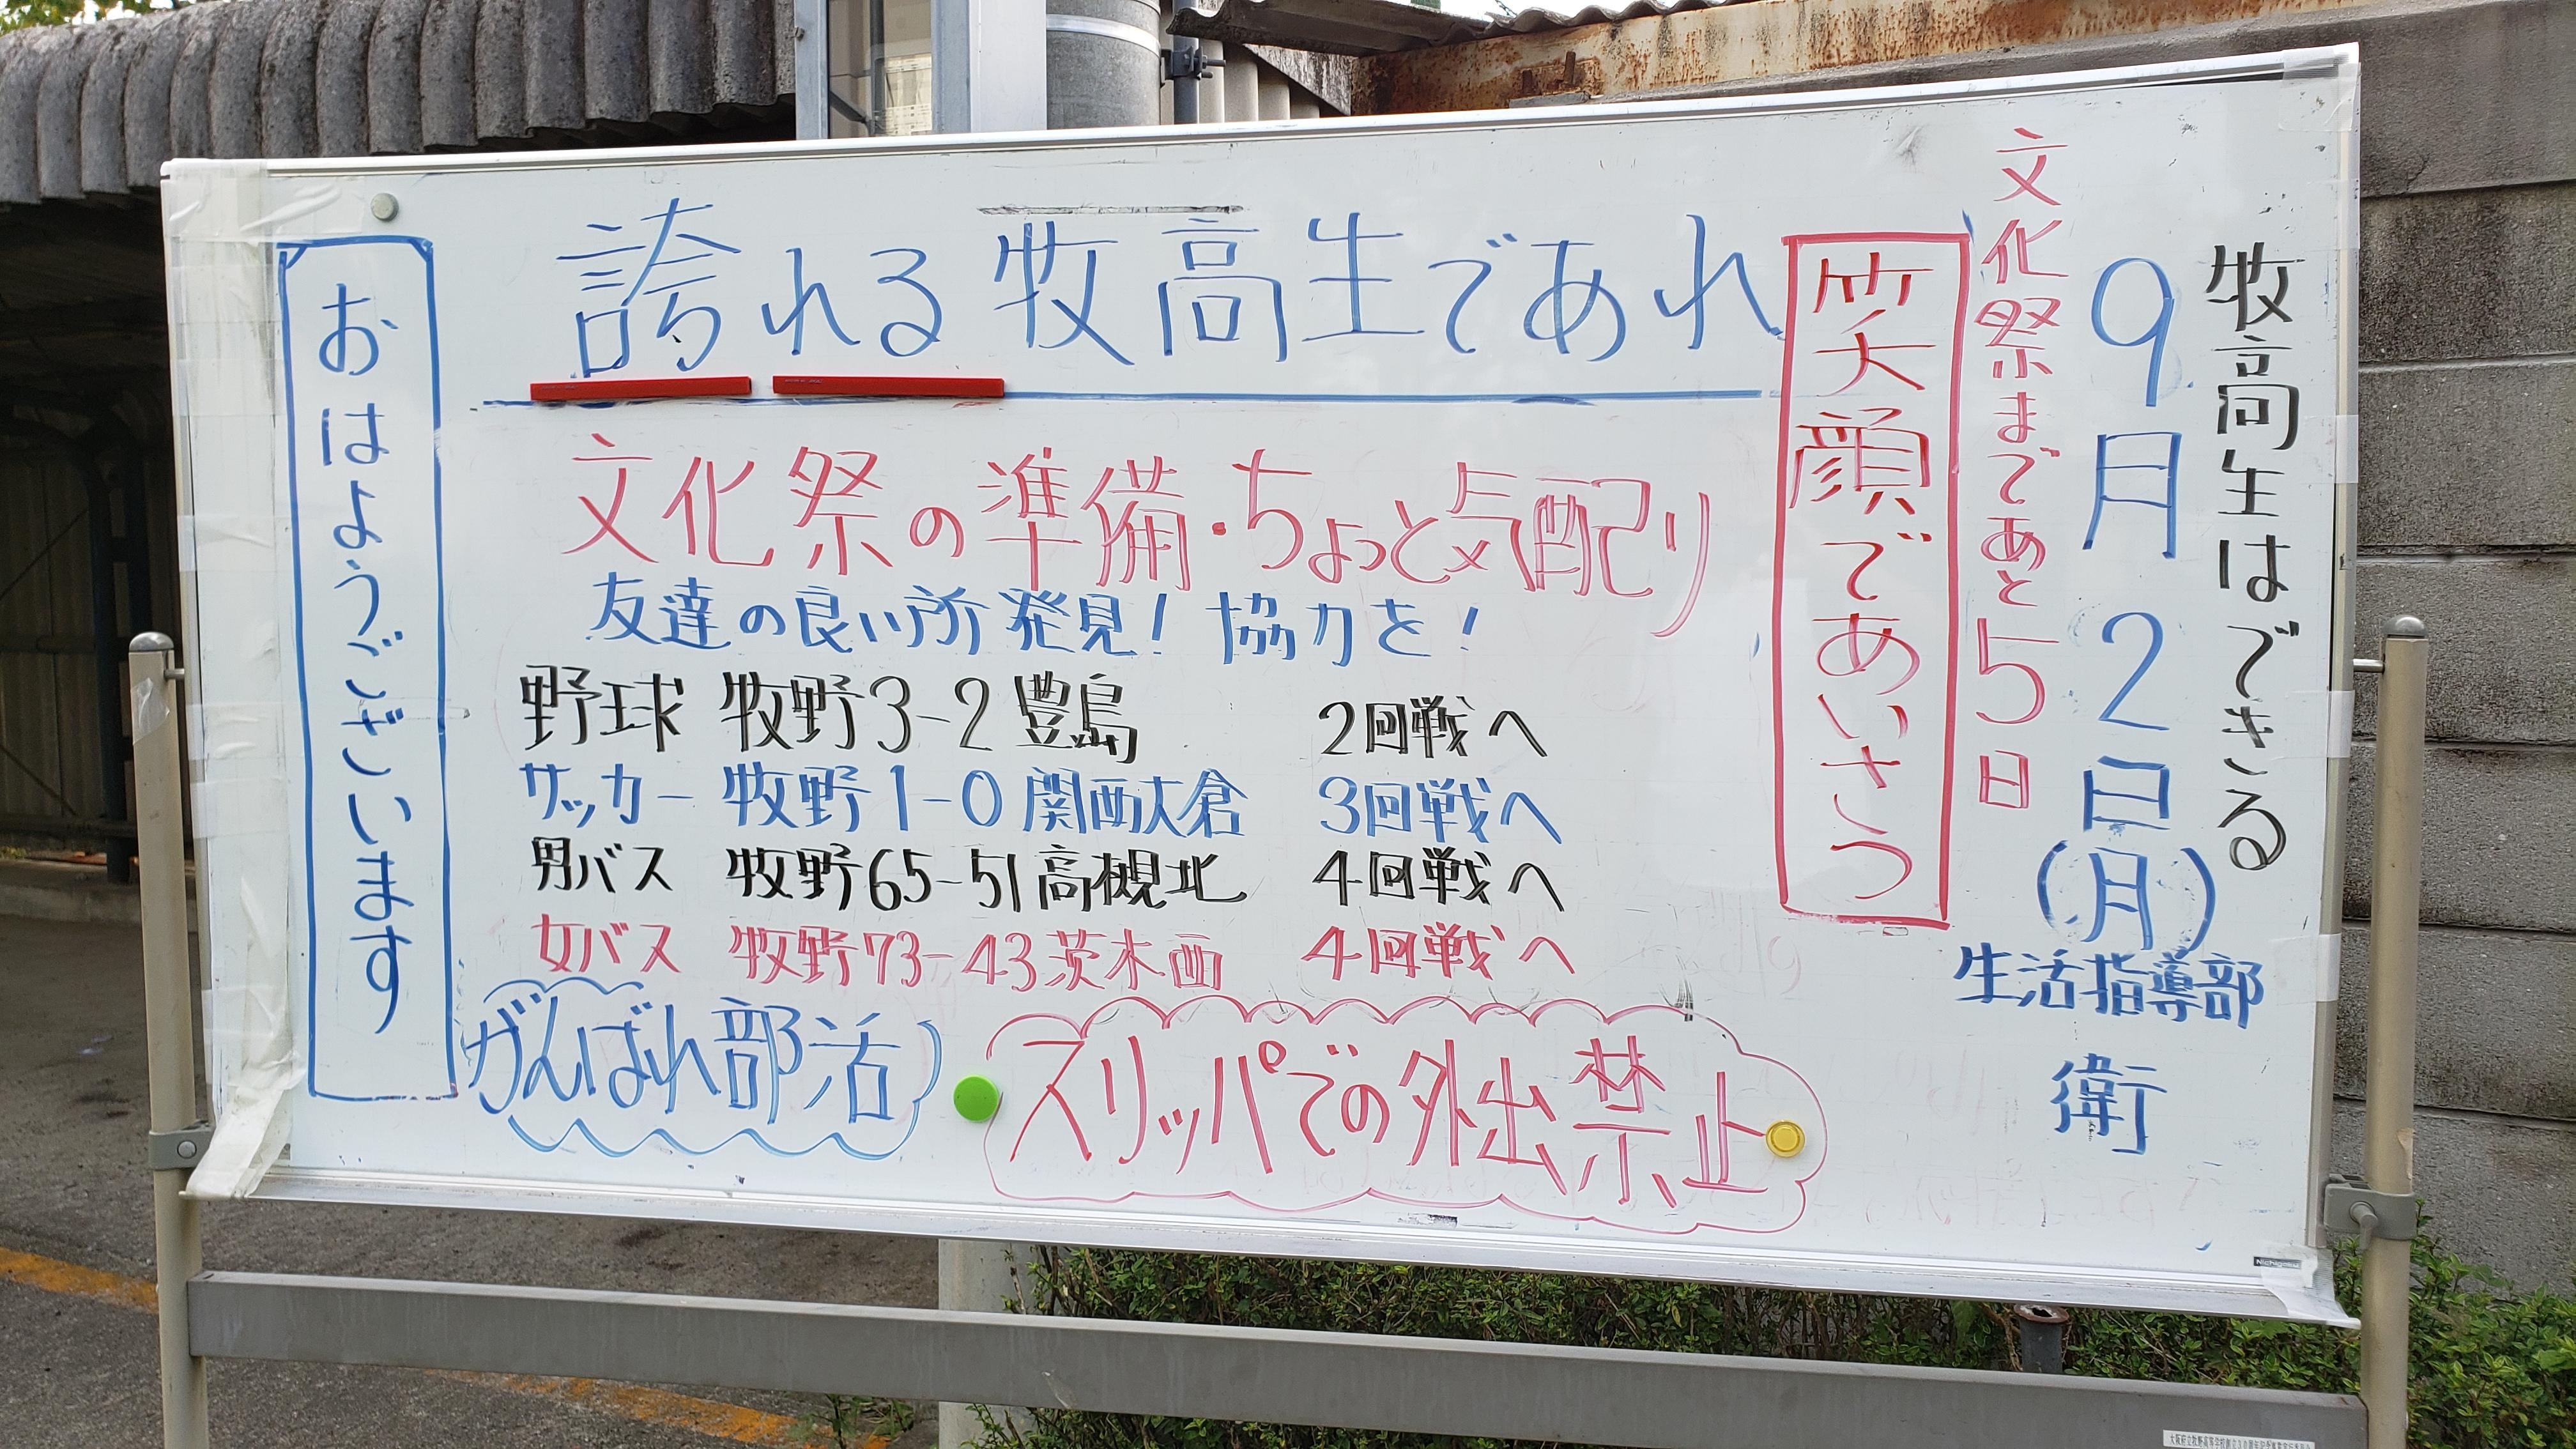 牧高生はできる
9月2日(月)
生活指導部
衛
文化祭まであと5日
笑顔であいさつ
誇れる牧高生であれ
文化祭の準備・ちょっと気配り
友達の良い所発見!協力を!
野球 牧野3-2豊島 2回戦へ
サッカー 牧野1-0関西大倉 3回戦へ
男バス 牧野65-51高槻北 4回戦へ
女バス 牧野73-43茨木西 4回戦へ
がんばれ部活
スリッパでの外出禁止
おはようございます
Nichigaku